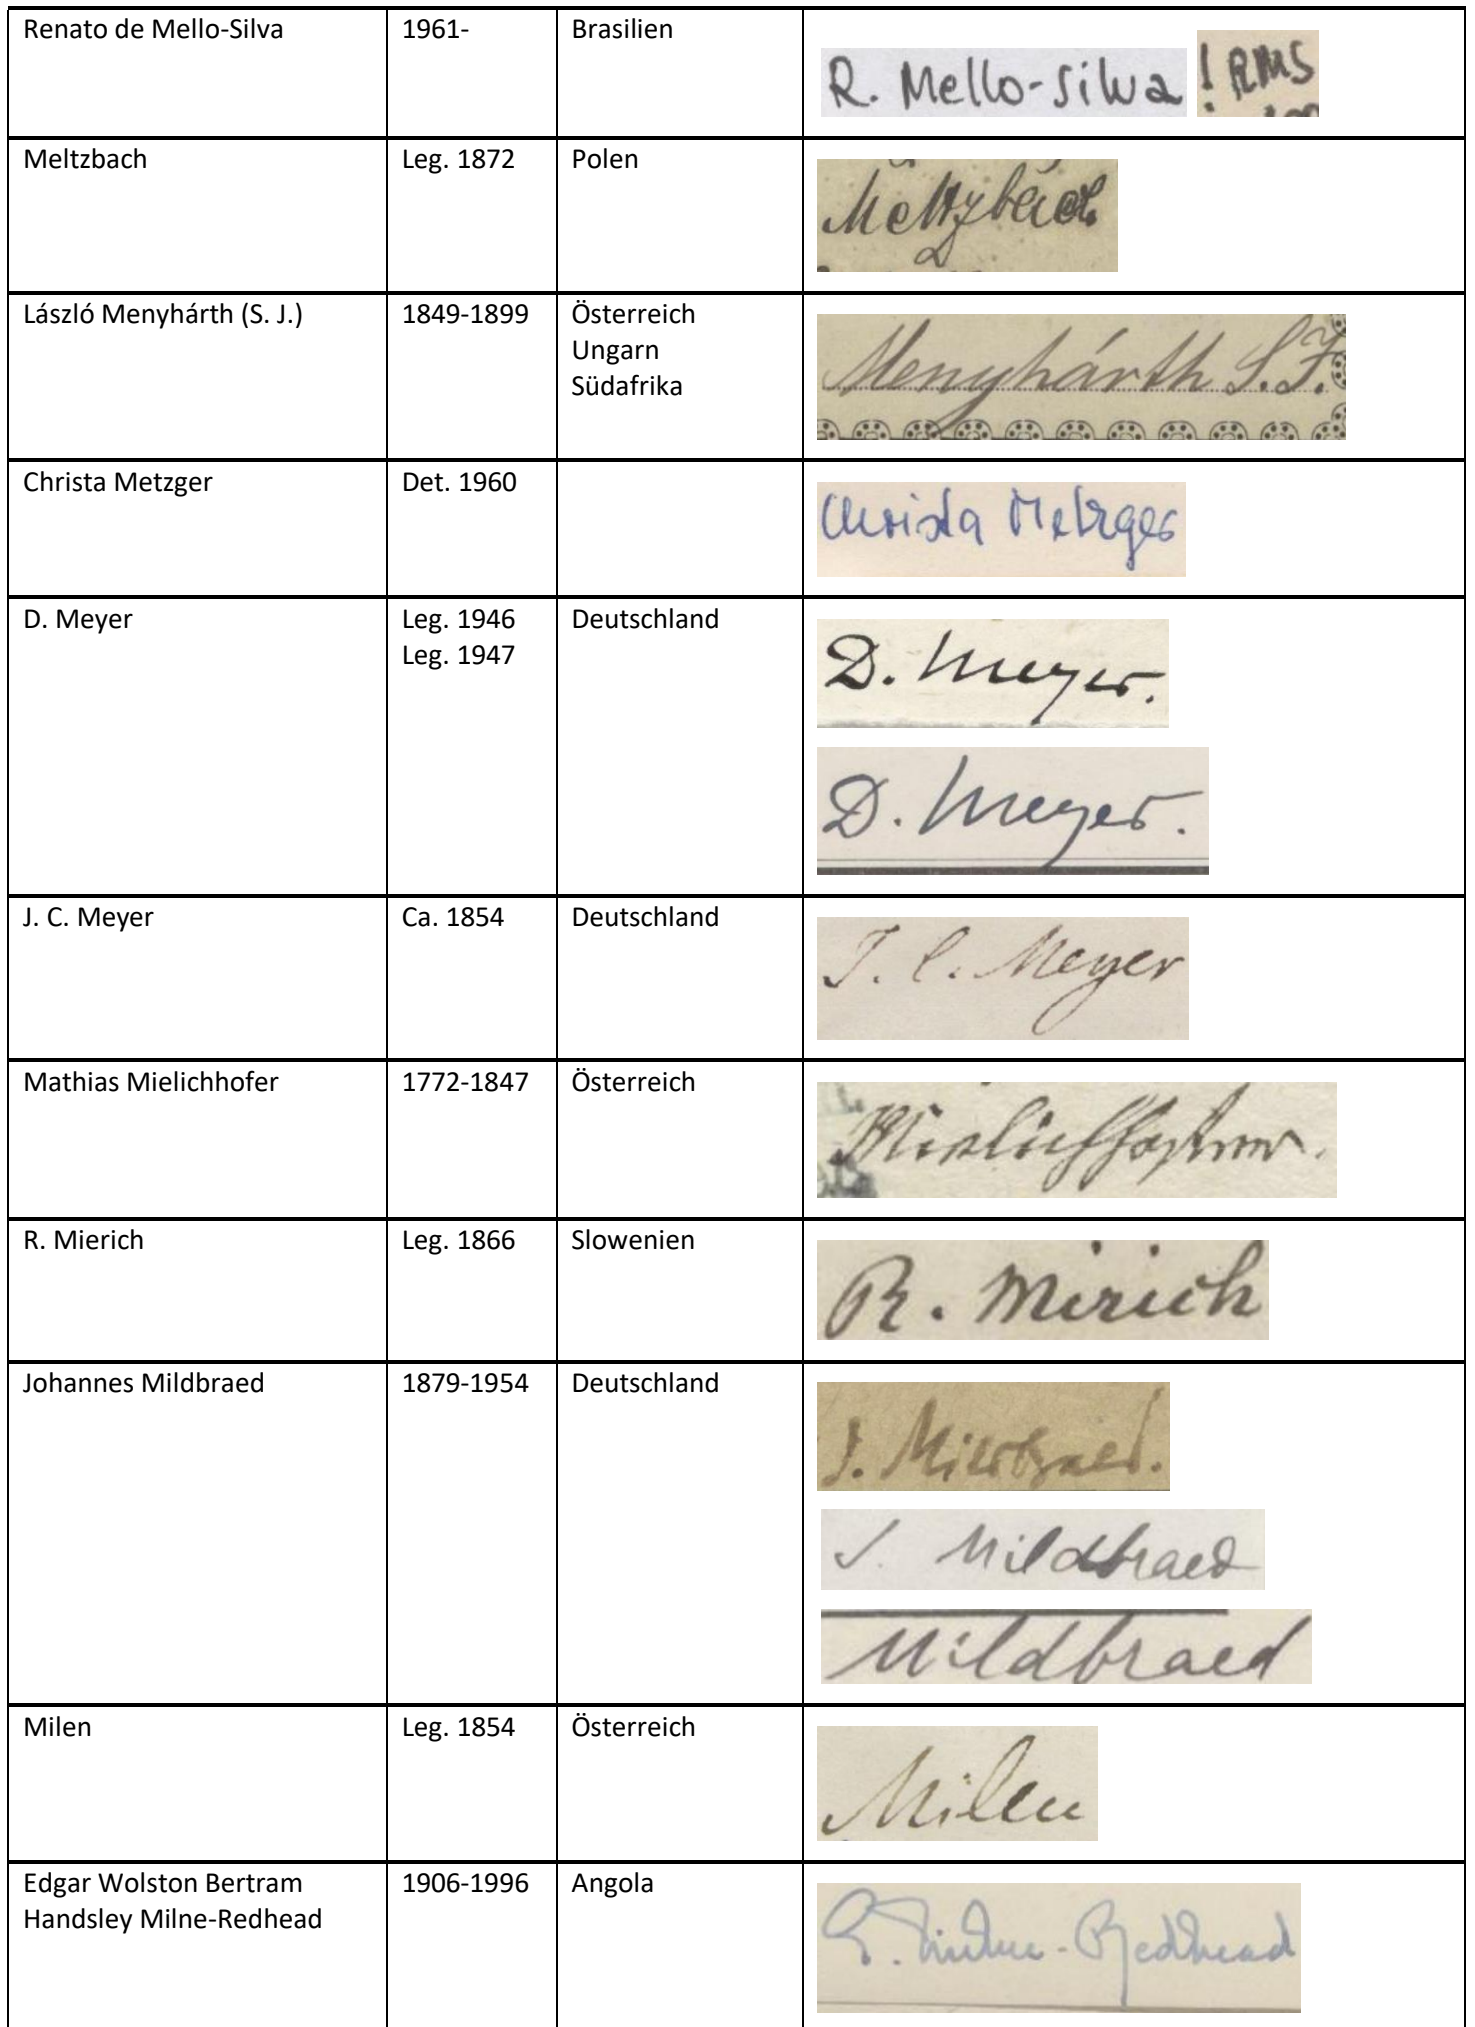 Renato de Mello-Silva 1961- Brasilien R. Mello-Silva ! RMS
Meltzbach Leg. 1872 Polen Meltzbach
László Menyhárth (S. J.) 1849-1899 Österreich Menyhárth S.J.
Ungarn
Südafrika
Christa Metzger Det. 1960 Christa Metzger
D. Meyer Leg. 1946 Deutschland D. Meyer.
Leg. 1947
D. Meyer.
J. C. Meyer Ca. 1854 Deutschland J. C. Meyer
Mathias Mielichhofer 1772-1847 Österreich Mielichhofer.
R. Mierich Leg. 1866 Slowenien R. Mirich
Johannes Mildbraed 1879-1954 Deutschland J. Mildbraed.
J. Mildbraed
Mildbraed
Milen Leg. 1854 Österreich Milen
Edgar Wolston Bertram 1906-1996 Angola E. Milne-Redhead
Handsley Milne-Redhead